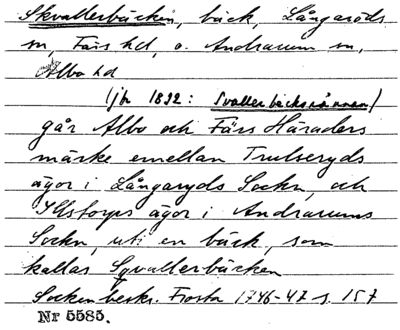 Skvallerbäcken, bäck, Långaröds
sn, Färs hd, o. Andrarum sn,
Albo hd
(jfr 1892: Svallerbäcksrännan)
går Albo och Färs Häraders
märke emellan Trulseryds
ägor i Långaryds Sockn, och
Illstorps ägor i Andrarums
Sockn, uti en bäck, som
kallas Sqvallerbäcken
Sockenbeskr. Frosta 1746-47 s. 157
Nr 5585.